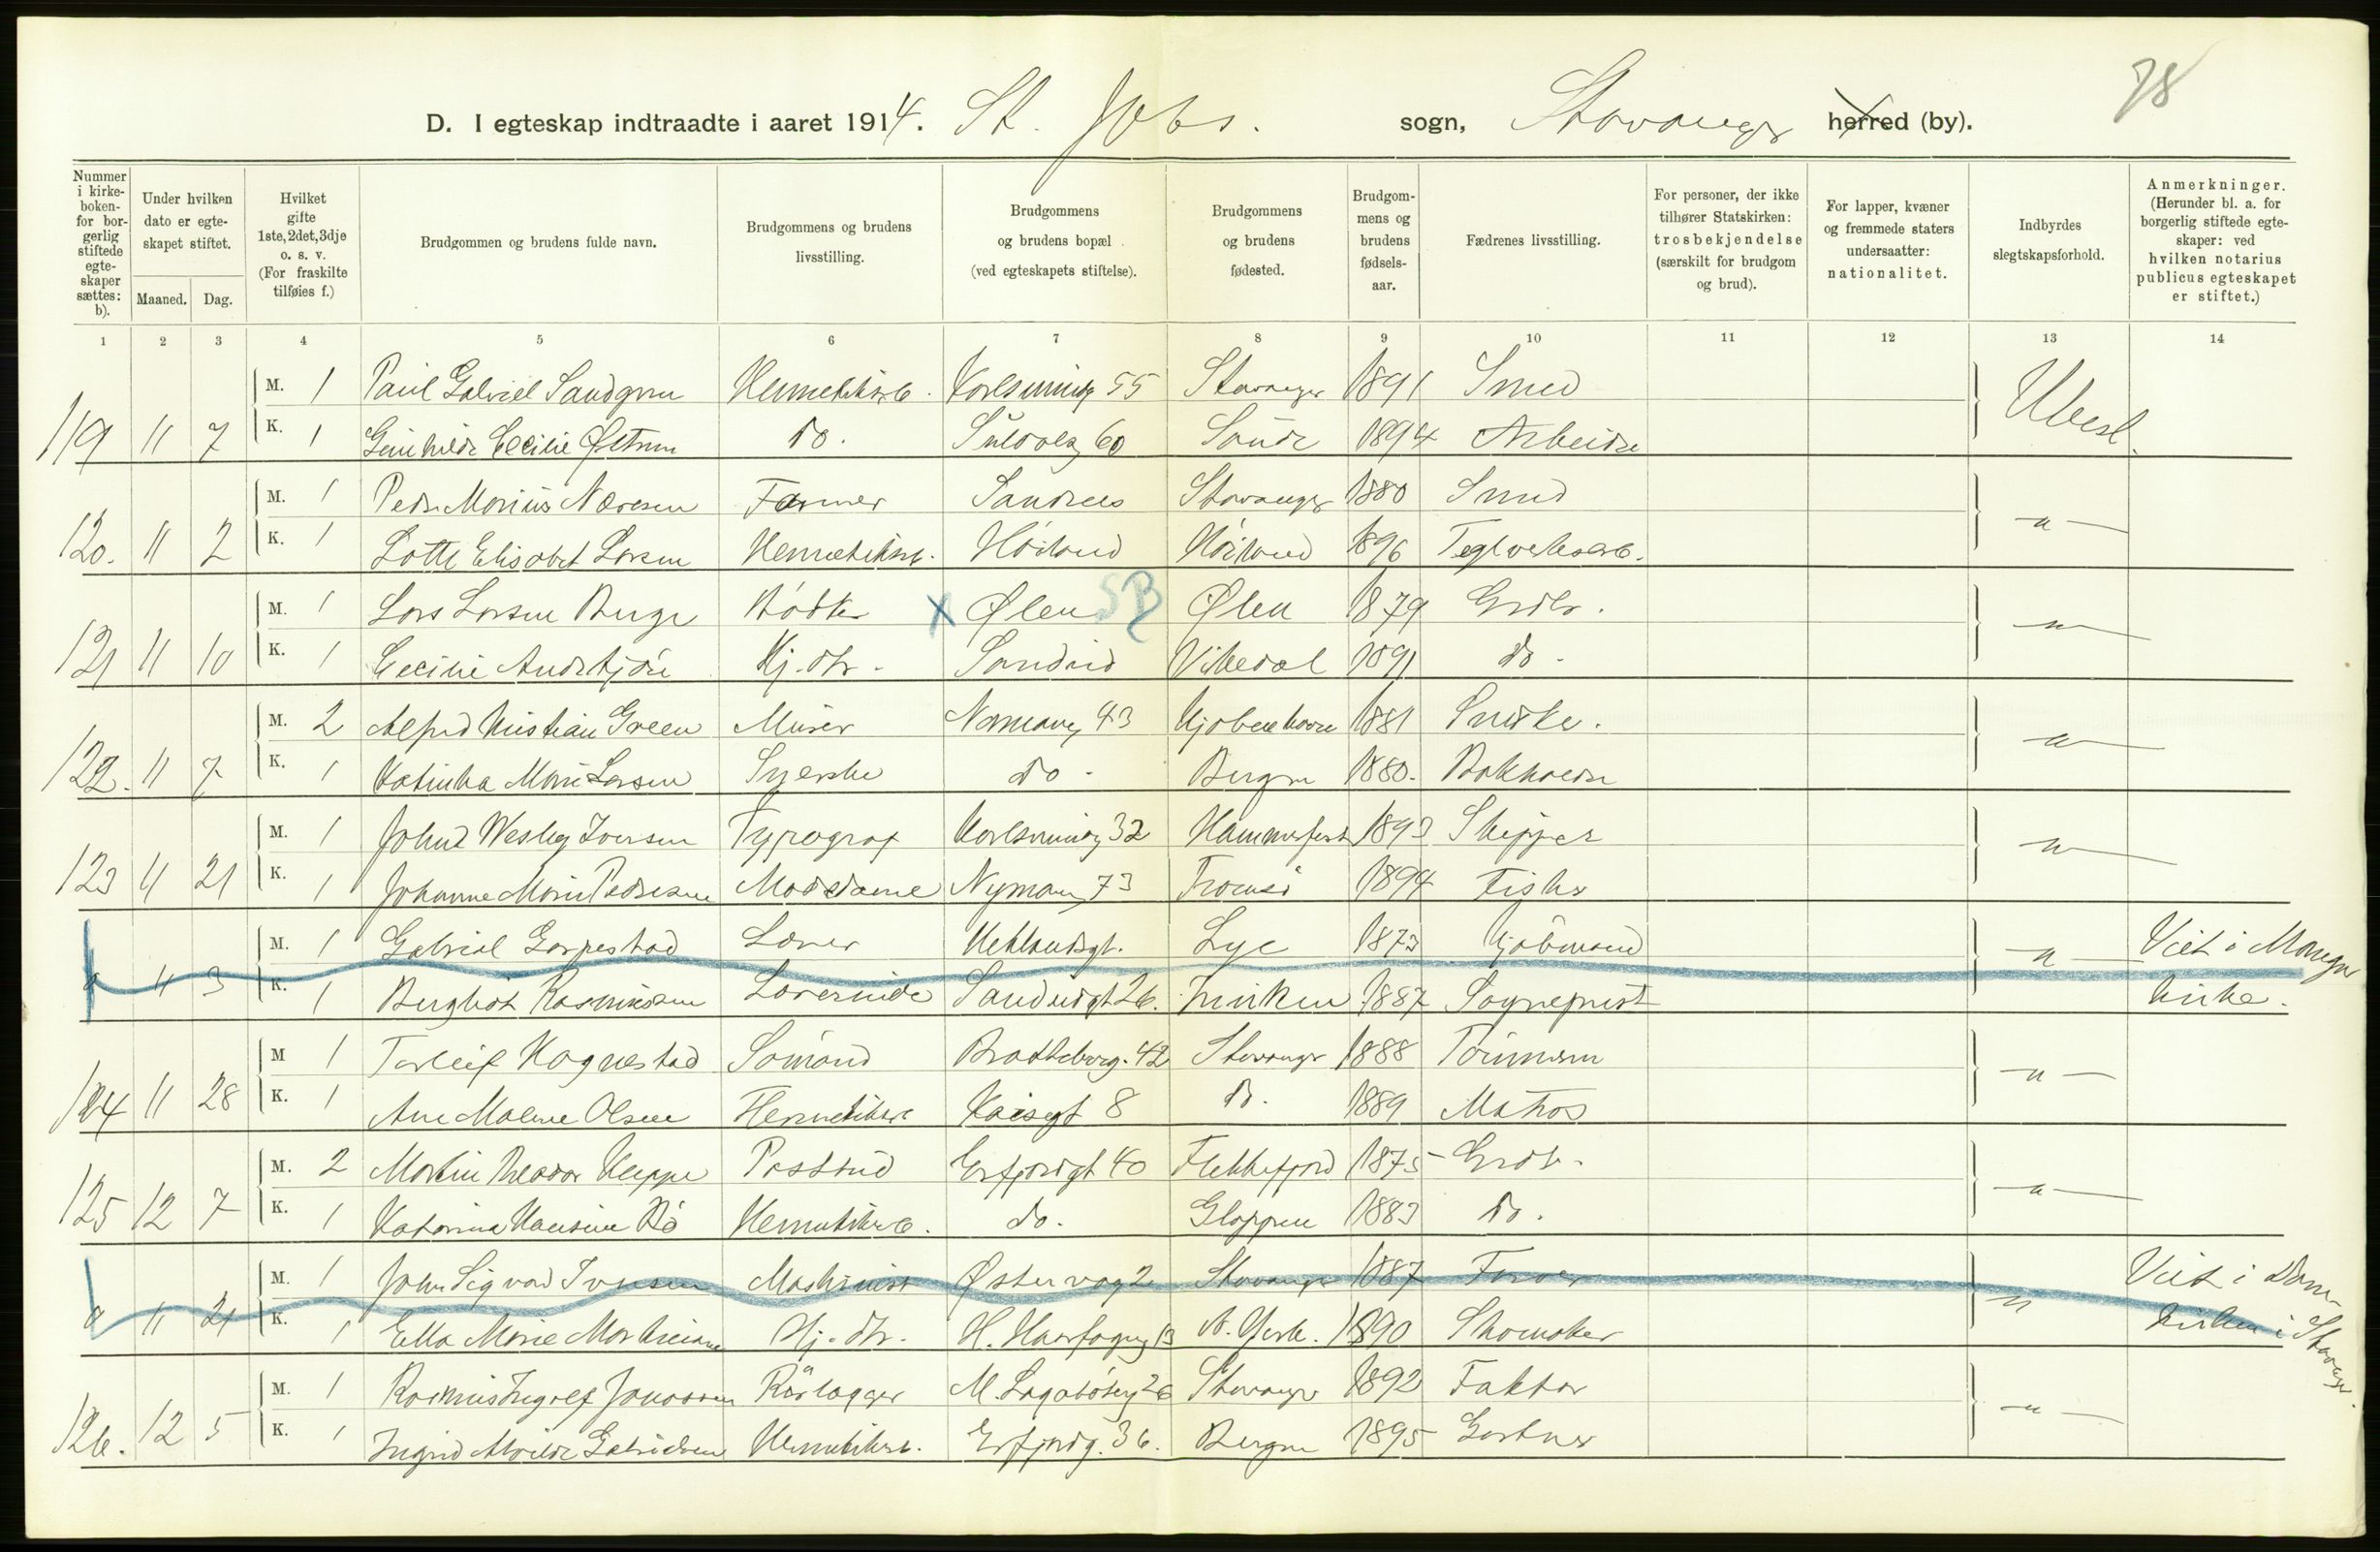 78
D. I egteskap indtraadte i aaret 1914. St. sogn, Stavanger herred (by).
Nummer i kirkeboken- for borgerlig stiftede egteskaper sættes: b).
Under hvilken dato er egteskapet stiftet.
Maaned. Dag.
Hvilket gifte 1ste, 2det, 3dje o. s. v. (For fraskilte tilføies f.)
Brudgommen og brudens fulde navn.
Brudgommens og brudens livsstilling.
Brudgommens og brudens bopæl (ved egteskapets stiftelse).
Brudgommens og brudens fødested.
Brudgommens og brudens fødselsaar.
Fædrenes livsstilling.
For personer, der ikke tilhører Statskirken: trosbekjendelse (særskilt for brudgom og brud).
For lapper, kvæner og fremmede staters undersaatter: nationalitet.
Indbyrdes slegtskapsforhold.
Anmerkninger. (Herunder bl. a. for borgerlig stiftede egteskaper: ved hvilken notarius publicus egteskapet er stiftet.)
1 2 3 4 5 6 7 8 9 10 11 12 13 14
M. 1 Paul Gabriel Sandgren Hermetikarb. Karlsminneg 55 Stavanger 1891 Smed Ubesl.
119 11 7 K. 1 Gunhilde Cecilie do. 60 Saude 1894 Arbeider
M. 1 Peder Marius Næresen Farmer Sandnes Stavanger 1880 Smed
120. 11 2 K. 1 Lotte Elisabet Larsen Hermetikarb. Høiland Høiland 1896 Teglverksarb. -"-
M. 1 Lars Larsen Berge Bødker X Ølen SB Ølen 1879 Grdbr.
121 11 10 K. 1 Cecilie Kj. dtr. Sandeid Vikedal 1891 do. -"-
M. 2 Alfred Kristian Green Murer 43 Kjøbenhavn 1881 Snedker.
122. 11 7 K. 1 Katinka Marie Larsen Syerske do. Bergen 1880. Bokholder -"-
M. 1 John Wesley Iversen Typograf Karlsminneg 32 Hammerfest 1893 Skipper
123 11 21 K. 1 Johanne Marie Pedersen Nymansg 73 Tromsø 1894 Fisker -"-
M. 1 Gabriel Garpestad Lærer Hetlandsgt. Lye 1873 Kjøbmand -"- Viet i Mange
11 3 K. 1 Bergliot Rasmussen Lærerinde Sandvigt 26. 1887 Sogneprest kirke.
M 1 Torleif Hognestad Sømand 42 Stavanger 1888 Tømmerm
124 11 28 K. 1 Ane Malene Olsen Hermetikarb Kaisgt 8 do. 1889 Matros -"-
M. 2 Martin Teodor Kleppe Postbud Erfjordgt 40 Flekkefjord 1875 Grdbr.
125 12 7 K. 1 Katarina Hansine Bø Hermetikarb. do. Gloppen 1883 do. -"-
M. 1 John Sigvard Iversen Maskinist Østervag 2 Stavanger 1887 Farver Viet i Dom-
11 21 K. 1 Ella Marie Martinsen Kj. dtr. H. Haarfagreg 13 N. York. 1890 Skomaker -"- kirken i Stavanger.
M. 1 Rasmus Ingolf Jonassen Rørlægger M. Lagabøteg 26 Stavanger 1892 Faktor
126. 12 5 K. 1 Ingrid Alvilde Gabrielsen Hermetikarb. Erfjordg. 36. Bergen 1895 Gartner -"-